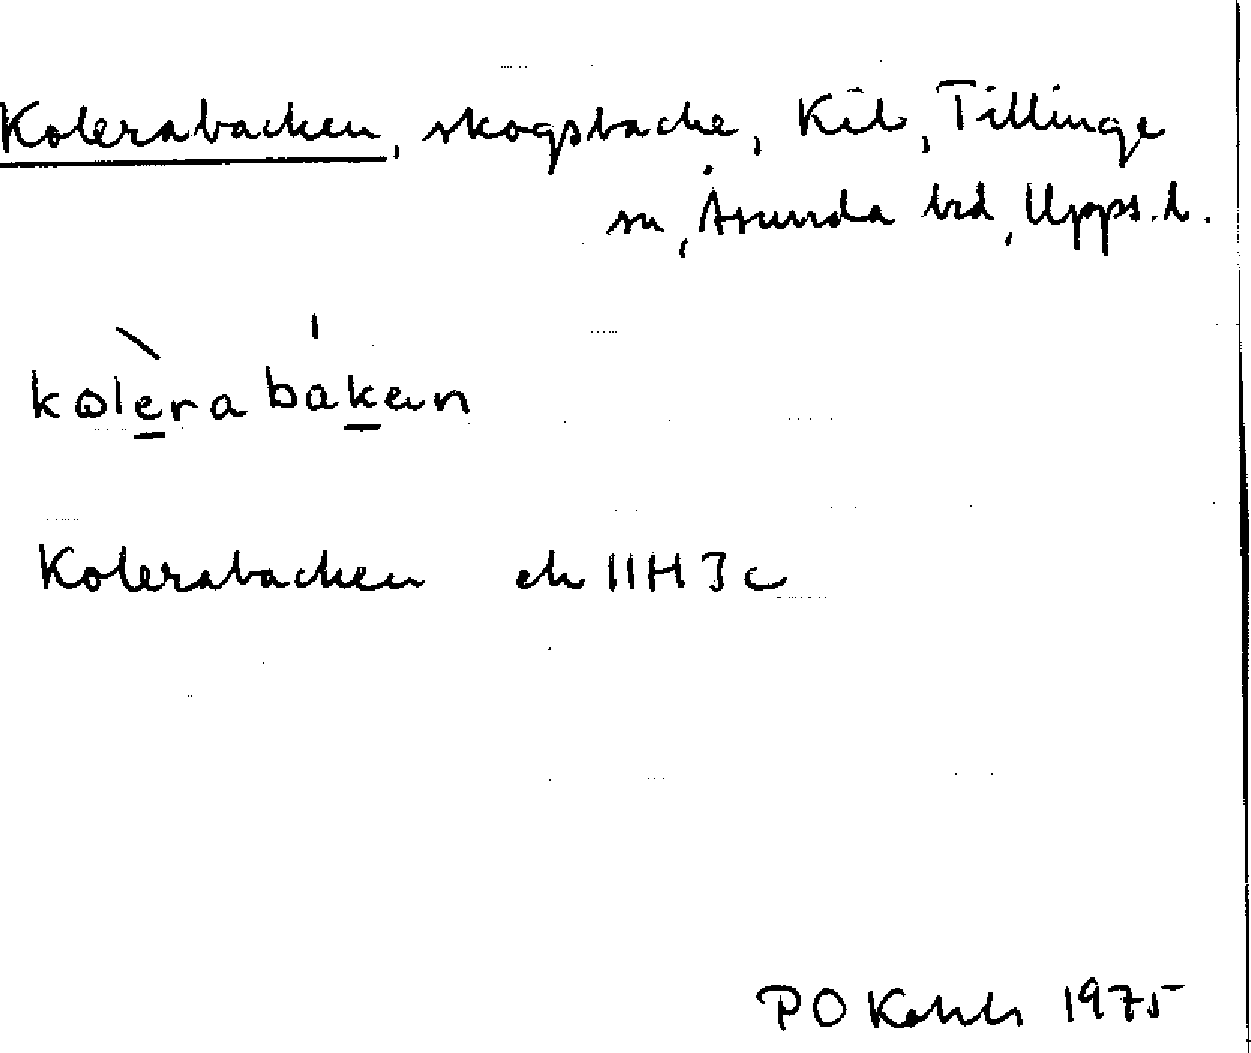 Kolerabacken, skogsbacke, Kil, Tillinge
sn, Åsunda hd, Upps. l.
kolèra bakan
Kolerabacken ek 11H 3c
P O 1975